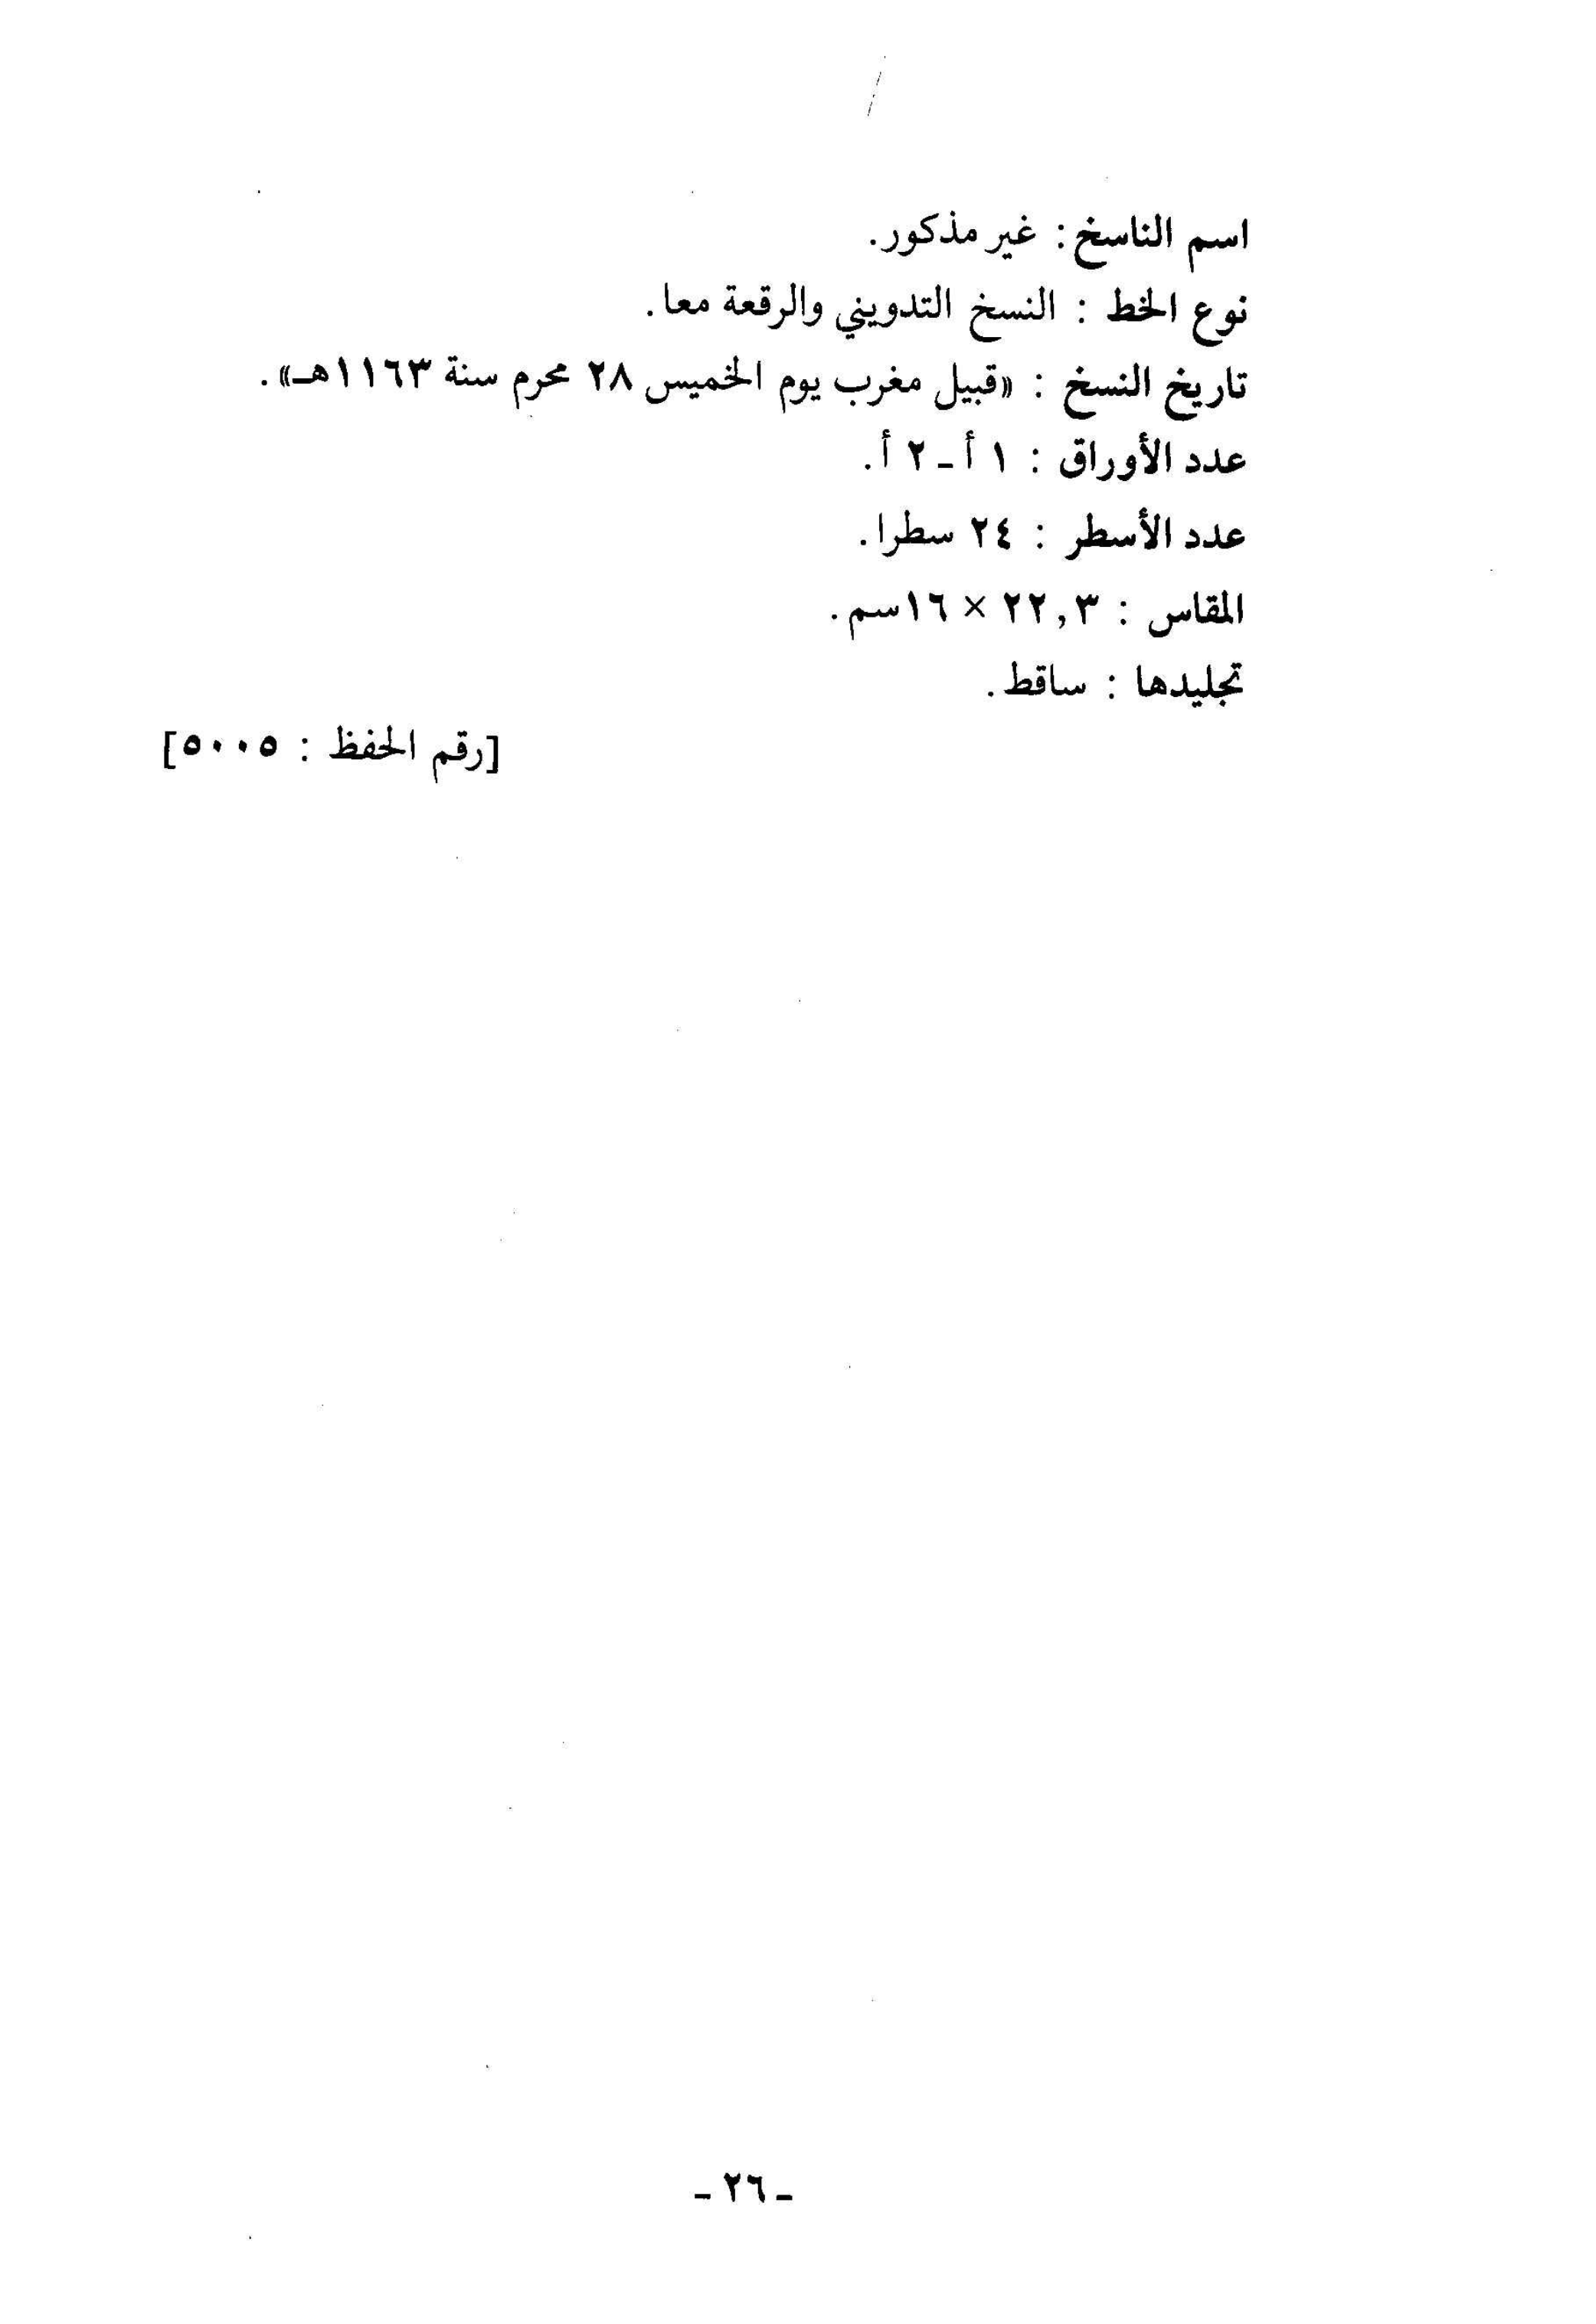 اسم الناسخ : غير مذكور.
نوع الخط : النسخ التدويني والرقعة معا.
تاريخ النسخ : «قبيل مغرب يوم الخميس ٢٨ محرم سنة ١١٦٣هـ».
عدد الأوراق : ١ أ ـ ٢ أ.
عدد الأسطر : ٢٤ سطرا.
المقاس : ٢٢,٣ × ١٦سم.
تجليدها : ساقط.
[رقم الحفظ : ٥٠٠٥]
ـ ٢٦ ـ